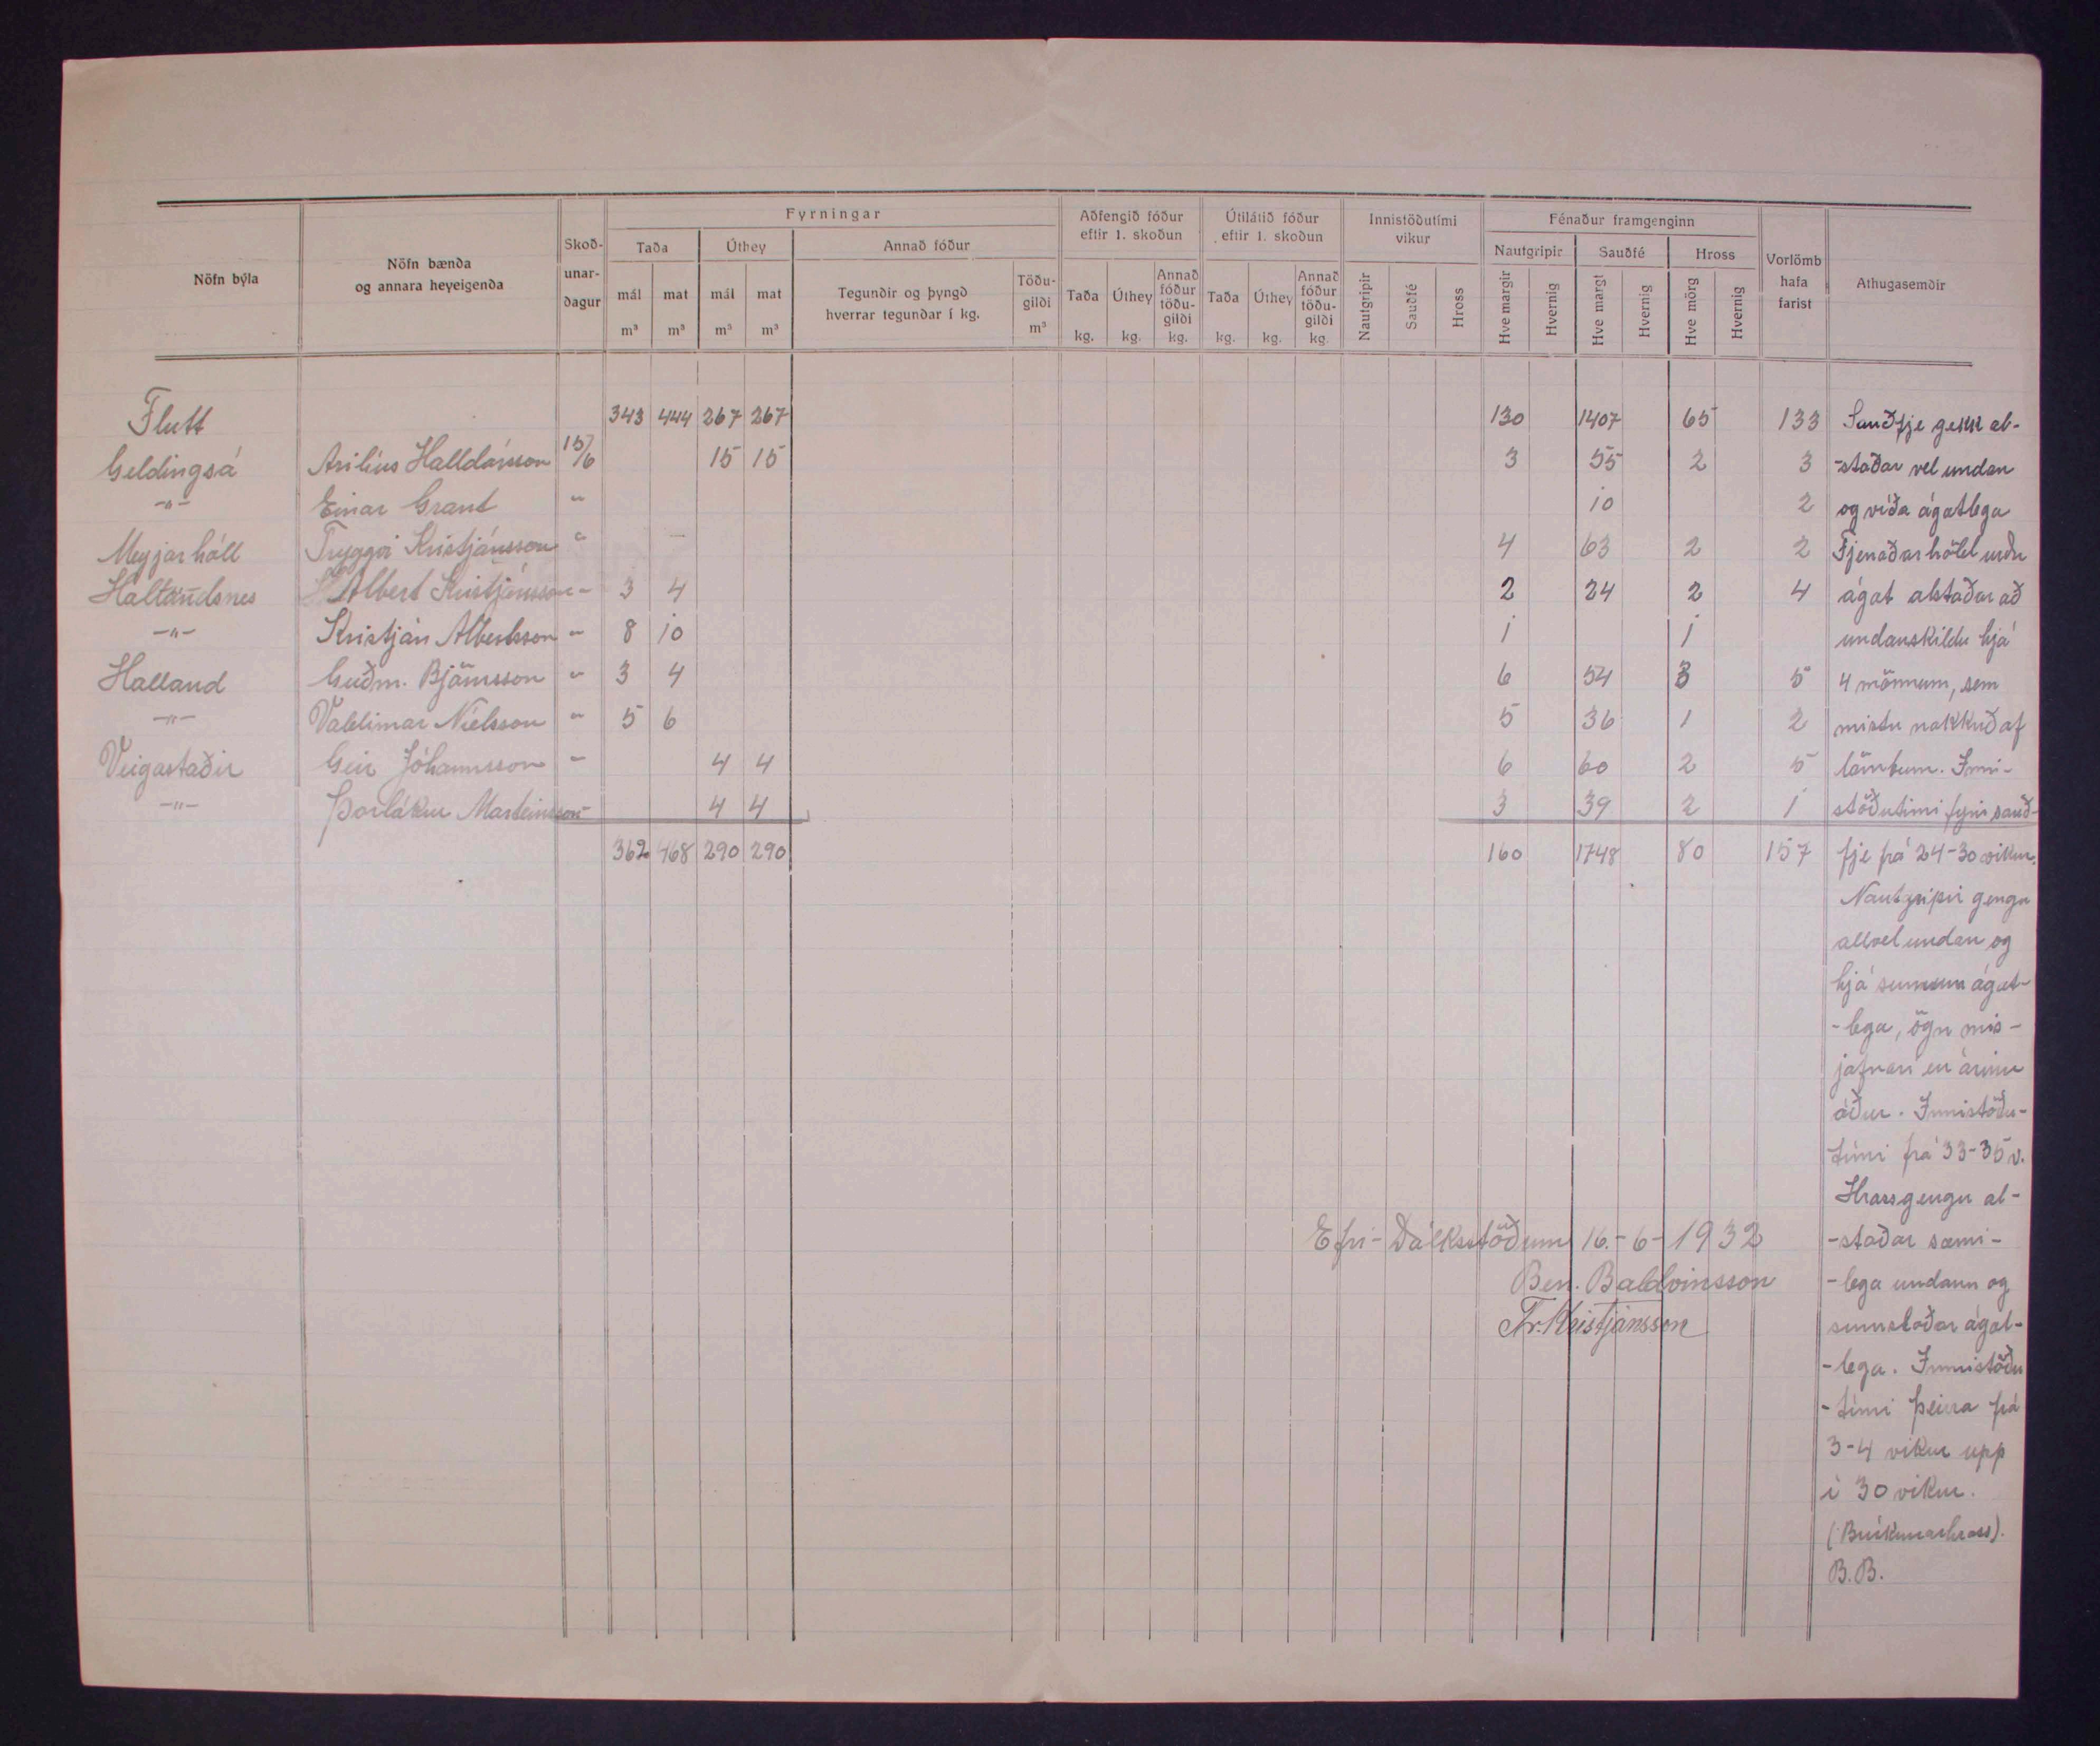 Nöfn býla | Nöfn bænda og annara heyeigenda | Skoð-unar-dagur | Fyrningar | Aðfengið fóður eftir 1. skoðun | Útilátið fóður eftir 1. skoðun | Innistöðutími vikur | Fénaður framgenginn | Vorlömb hafa farist | Athugasemdir
Taða | Úthey | Annað fóður | Nautgripir | Sauðfé | Hross
mál m³ | mat m³ | mál m³ | mat m³ | Tegundir og þyngd hverrar tegundar í kg. | Töðu-gildi m³ | Taða kg. | Úthey kg. | Annað fóður töðu-gildi kg. | Taða kg. | Úthey kg. | Annað fóður töðu-gildi kg. | Nautgripir | Sauðfé | Hross | Hve margir | Hvernig | Hve margt | Hvernig | Hve mörg | Hvernig
Flutt 343 444 267 267 130 1407 65 133 Sauðfje gekk al-
Geldingsá Asilíus Halldórsson 15/6 15 15 3 55 2 3 -staðar vel undan
-"- Einar Grant " 10 2 og víða ágatlega
Meyjarhóll Tryggvi Kristjánsson " 4 63 2 2 Fjenaðarhöld urðu
Hallandsnes Albert Kristjánsson - 3 4 2 24 2 4 ágat alstaðar að
-"- Kristján Albertsson " 8 10 1 1 undanskildu hjá
Halland Guðm. Björnsson " 3 4 6 54 3 5 4 mönnum, sem
-"- Valdimar Níelsson " 5 6 5 36 1 2 mistu nokkuð af
Veigastaðir Geir Jóhannsson - 4 4 6 60 2 5 lömbum. Inni-
-"- Þorlákur Marteinsson - 4 4 3 39 2 1 stöðutími fyrir sauð-
362 468 290 290 160 1748 80 157 fje frá 24-30 vikur.
Nautgripir gengu
allvel undan og
hjá sumum ágat-
-lega, ögn mis-
jafnari en árinu
áður. Innistöðu-
tími frá 33-35 v.
Hross gengu al-
-staðar sæmi-
-lega undann og
sumstaðar ágat-
-lega. Innistöðu
-tími þeirra frá
3-4 vikur upp
í 30 vikur.
(Brúkunarhross).
B.B.
Efri-Dálksstöðum 16.-6-1932
Ben. Baldvinsson
Tr. Kristjánsson